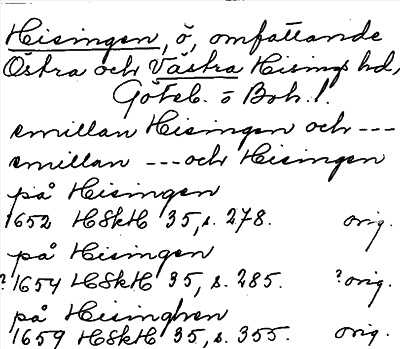 Hisingen, ö, omfattande
Östra och Västra Hisings hd,
Göteb. o Boh. l.
emillan Hisingen och ---
emillan --- och Hisingen
på Hisingen
1652 HSkH 35, s. 278. orig.
på Hisingen
? 1654 HSkH 35, s. 285. ? orig.
på Hisinghen
1659 HSkH 35, s. 355. orig.